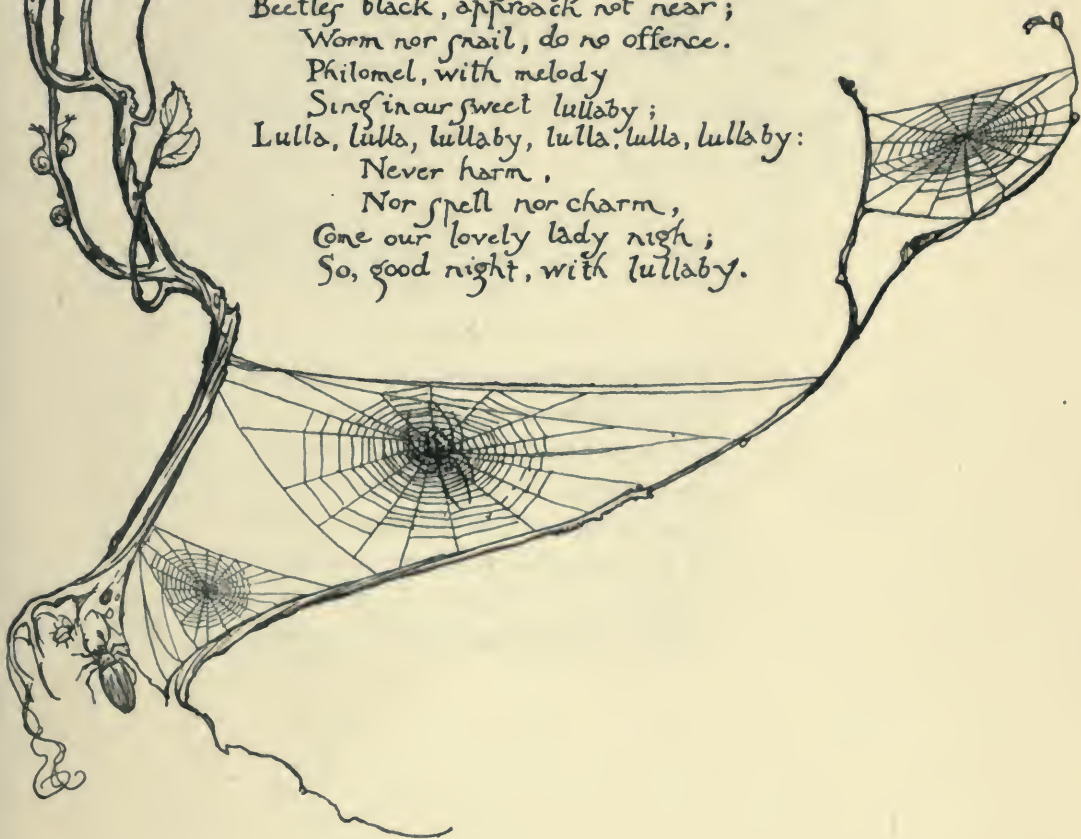 Beetles black, approach not near;
Worm nor snail, do no offence.
Philomel, with melody
Sing in our sweet lullaby;
Lulla, lulla, lullaby, lulla, lulla, lullaby:
Never harm,
Nor spell nor charm,
Come our lovely lady nigh;
So, good night, with lullaby.